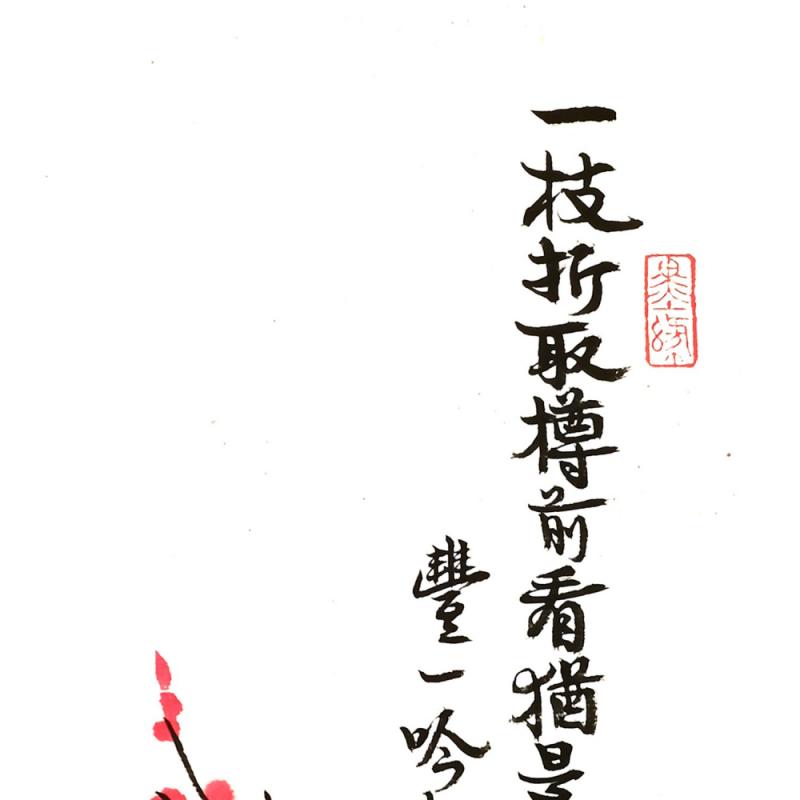 一枝折取樽前看猶是
豐一吟